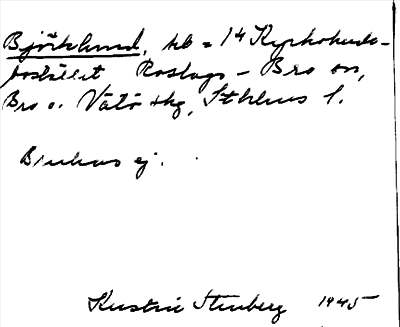 Björklund, hb = 1/4 Kyrkoherde-
bostället Roslags-Bro sn,
Bro o. Vätö skg, Sthlms l.
Brukas ej.
Kerstin Stenberg 1945